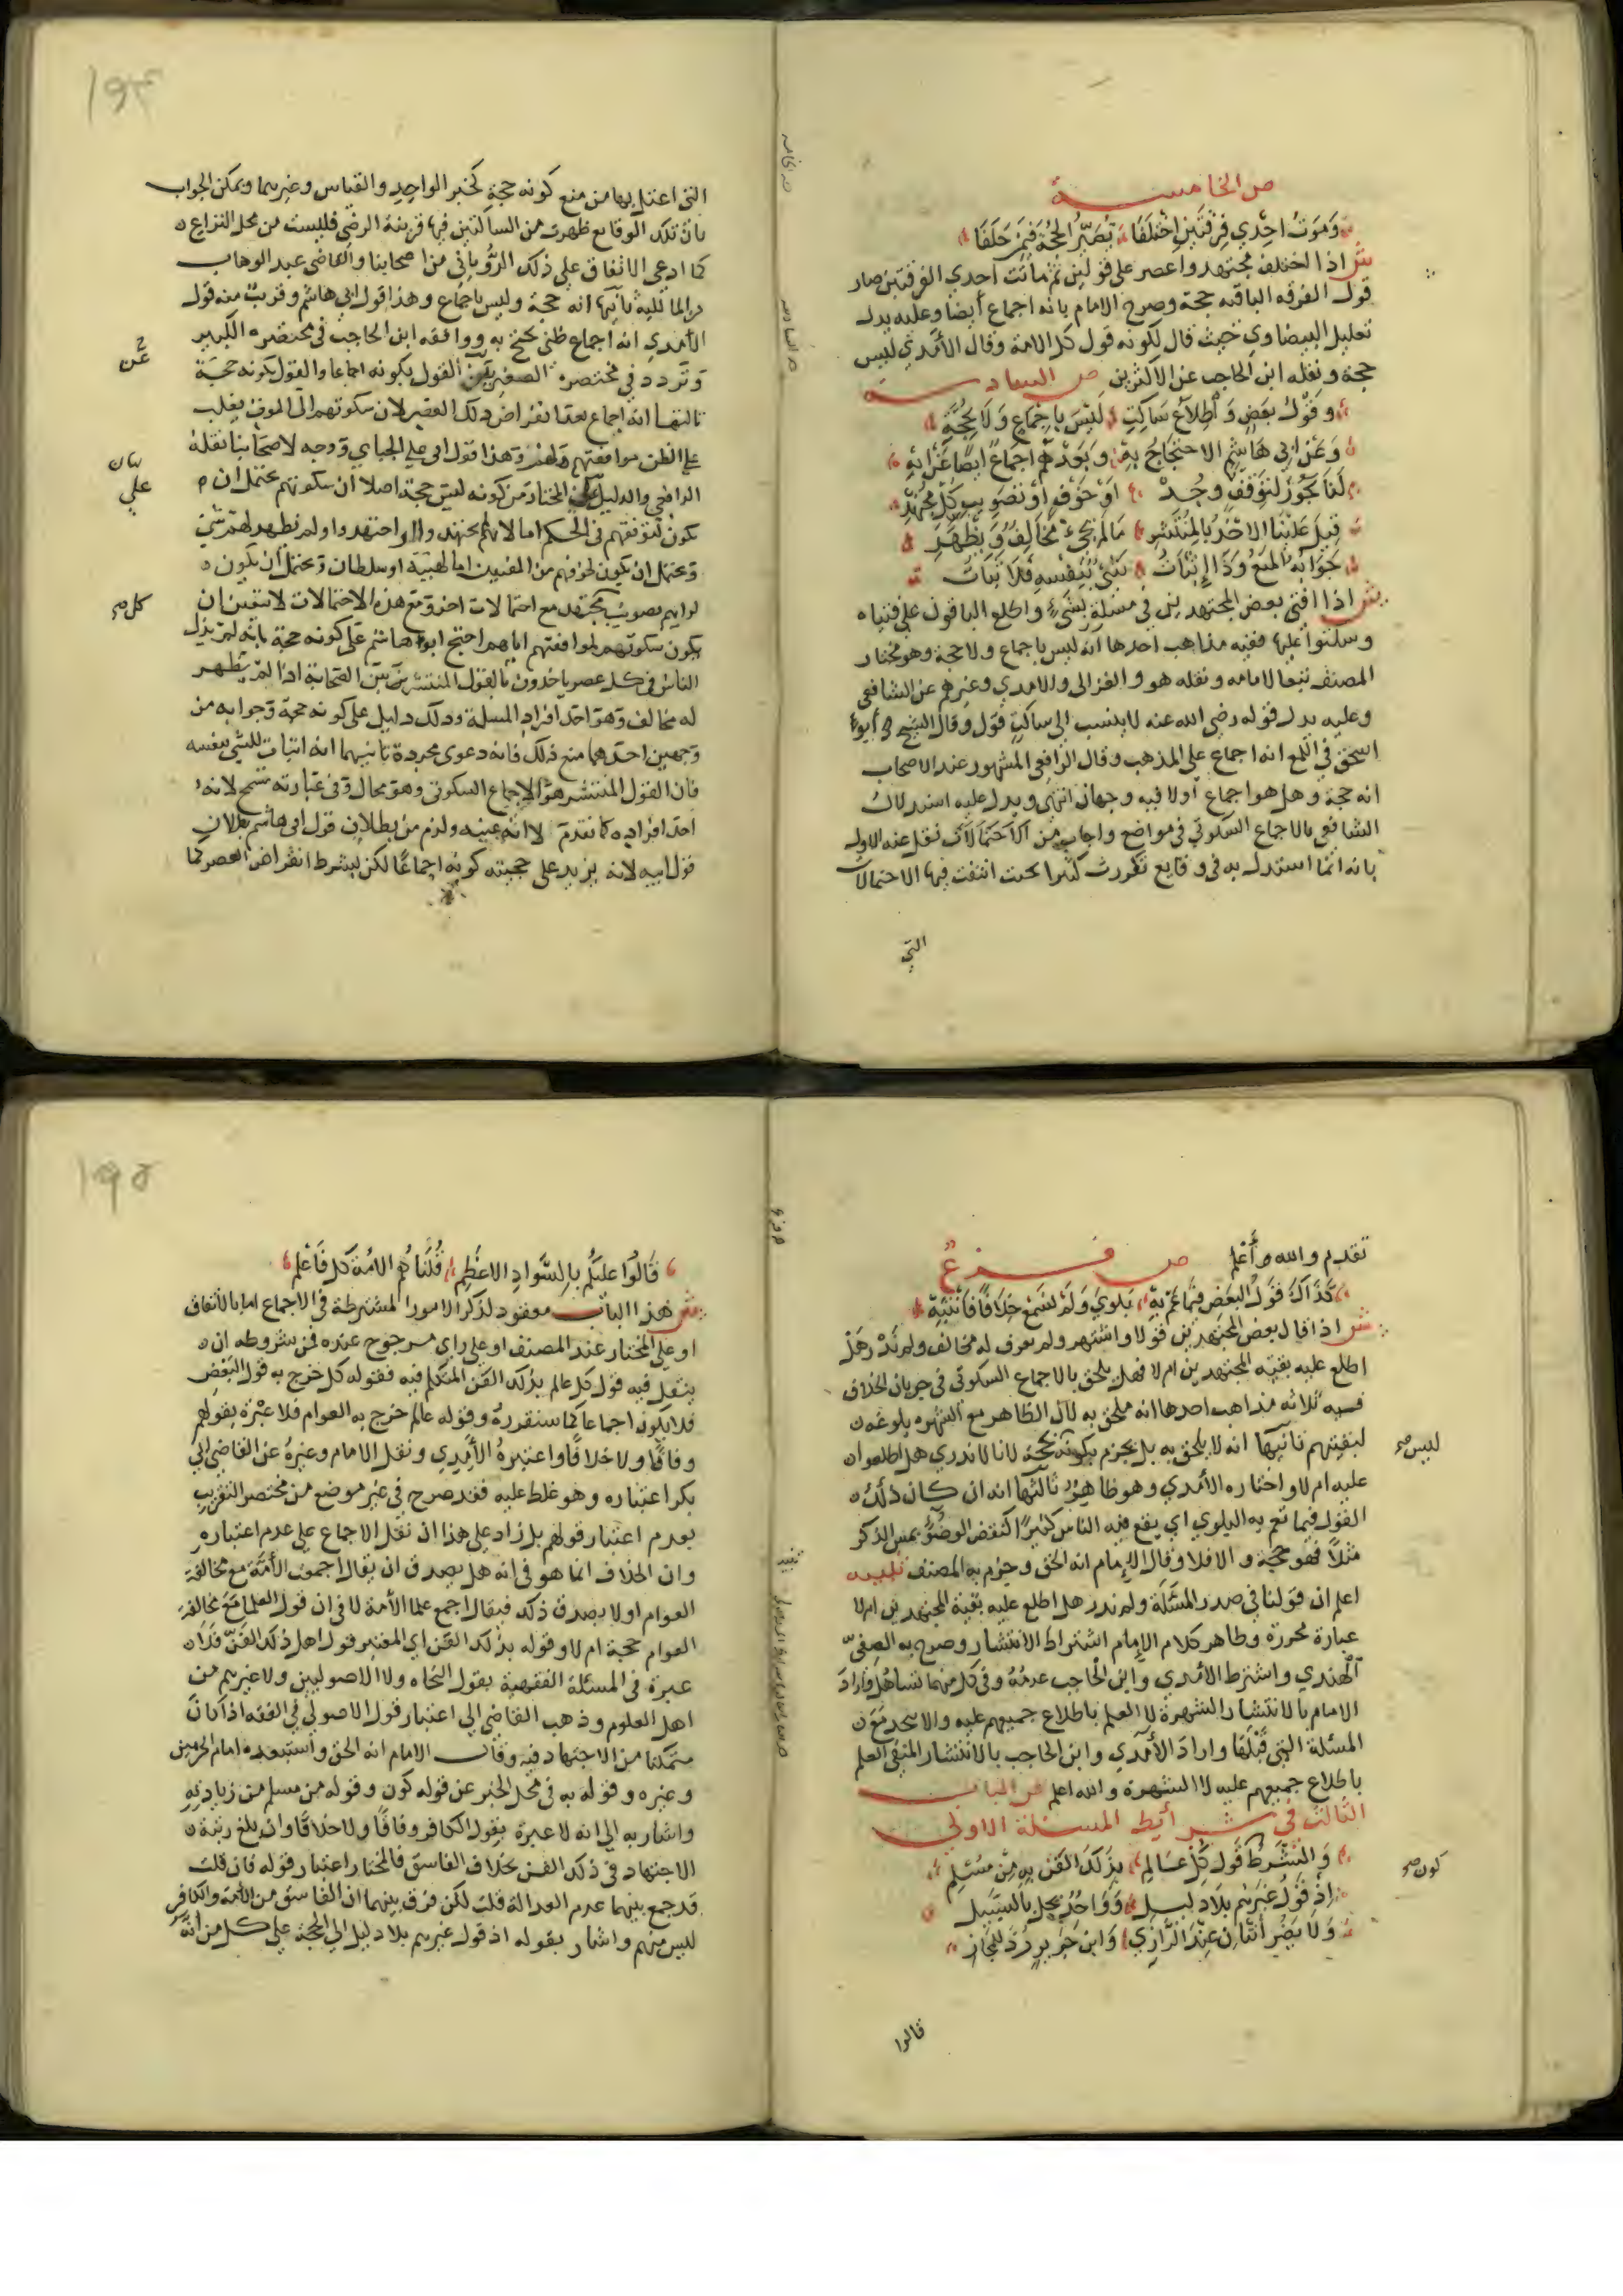 ص الخامسة
وَمَوتُ احِدي فِرقَتَينِ اخْتَلَفَا تُصَيِّرُ الحُجَّةَ فيمَن خَلَفَا
ش اذا اختلف مجتهدوا عصر على قولين ثم ماتت احدي الفرقتين صار
قول الفرقه الباقيه حجة وصرح الامام بانه اجماع أيضا وعليه يدل
تعليل البيضاوي حيث قال لكونه قول كل الامة وقال الآمدي ليس
حجة ونقله ابن الحاجب عن الاكثرين ص السادسة
وقَولُ بَعضٍ وَاطلاعُ سَاكِتِ لَيْسَ بِاجْمَاعٍ وَلَا بحُجَّةِ
وَعَنْ ابِي هَاشِمٍ الاحتجَاجُ بِهِ وبَعْدَهُم اجمَاعٌ ايضًا عَنْ ابِهِ
لَنَا يجُوزُ لِتَوقفٍ وُجِدْ اوْ خَوْفِهِ اوْ تَصْوِيبِ كُلِّ مُجْتَهِدْ
قِيلَ عَلَيْنَا الاخذُ بالمُنْتَشِرِ مَا لَم يجئ مُخَالِفٌ وَيَظْهَرِ
جَوَابُهُ المَنعُ وَذَا إِثبَاتُ شَيْءٍ بِنَفْسِهِ فَلَا ثَبَاتُ
ش اذا افتى بعض المجتهدين في مسئلة بشيء واطلع الباقون على فتياه
وسكتوا عليها ففيه مذاهب احدها انه ليس باجماع ولا حجة وهو مختار
المصنف تبعا لامامه ونقله هو والغزالي والامدي وغيرهم عن الشافعي
وعليه يدل قوله رضي الله عنه لا ينسب الى ساكت قول وقال الشيخ أبو
اسحق في اللمع انه اجماع على المذهب وقال الرافعي المشهور عند الاصحاب
انه حجة وهل هو اجماع أولا فيه وجهان انتهى ويدل عليه استدلال
الشافعي بالاجماع السكوتي في مواضع واجاب من نقل عنه الاول
بانه انما استدل به في وقايع تكررت كثيرا بحيث انتفت فيها الاحتمالات
التي
١٩٤
التي اعتل بها من منع كونه حجة كخبر الواحد والقياس وغيرهما ويمكن الجواب
بان تلك الوقايع ظهرت من الساكتين فيها قرينة الرضى فليست من محل النزاع
كما ادعى الاتفاق على ذلك الروياني من اصحابنا والقاضي عبد الوهاب
من المالكية ثانيها انه حجة وليس باجماع وهذا قول ابي هاشم وقريب منه قول
الآمدي انه اجماع ظني يحتج به ووافقه ابن الحاجب في مختصره الكبير
وتردد في مختصره الصغير بين القول بكونه اجماعا والقول بكونه حجة
ثالثها انه اجماع بعد انقراض ذلك العصر لان سكوتهم الى الموت يغلب
على الظن موافقتهم وهذا قول ابي علي الجبائي ووجه لاصحابنا نقله
الرافعي والدليل على المختار من كونه ليس حجة اصلا ان سكوتهم يحتمل ان
يكون لتوقفهم في الحكم اما لانهم لم يجتهدوا او اجتهدوا ولم يظهر لهم شيء
ويحتمل ان يكون لخوفهم من المفتين اما لهيبة او سلطان ويحتمل ان يكون
لرايهم تصويب مجتهد مع احتمالات اخر ومع هذه الاحتمالات لا يتعين ان
يكون سكوتهم لموافقتهم اياهم احتج ابو هاشم على كونه حجة بانه لم يزل
الناس في كل عصر ياخذون بالقول المنتشر بين الصحابة اذا لم يظهر
له مخالف وهو احد افراد المسلة وذلك دليل على كونه حجة وجوابه من
وجهين احدهما منع ذلك فانه دعوى مجردة ثانيهما انه اثبات للشي بنفسه
فان القول المنتشر هو الاجماع السكوتي وهو محال وفي عبارته تسمح لانه
احد افراده كما تقدم لا انه عينه ولزم من بطلان قول ابي هاشم بطلان
قول ابيه لانه يزيد على حجيته كونه اجماعًا لكن بشرط انقراض العصر كما
عن
بيان
علي
كل صح
تقدم والله أعلم ص فرع
كَذَاكَ قَولُ البَعضِ فيمَا عَمَّ بِهْ بَلوي وَلَم نَسمَع خِلَافًا فَانتَبِهْ
ش اذا قال بعض المجتهدين قولا واشتهر ولم يعرف له مخالف ولم ندر هل
اطلع عليه بقية المجتهدين ام لا فهل يلحق بالاجماع السكوتي في جريان الخلاف
فيه ثلاثه مذاهب احدها انه ملحق به لان الظاهر مع الشهره بلوغه
لبقيتهم ثانيها انه لا يلحق به بل يجزم بكونه بحجة لانا لا ندري هل اطلعوا
عليه ام لا واختاره الآمدي وهو ظاهر ثالثها انه ان كان ذلك
القول فيما تعم به البلوي اي يقع فيه الناس كثيرًا كنقض الوضوء بمس الذكر
مثلاً فهو حجة والا فلا وقال الإمام انه الحق وجزم به المصنف تنبيه
اعلم ان قولنا في صدر المسئلة ولم ندر هل اطلع عليه بقية المجتهدين ام لا
عبارة محررة وظاهر كلام الإمام اشتراط الانتشار وصرح به الصفي
الهندي واشترط الآمدي وابن الحاجب عدمه وفي كل منهما تساهل واراد
الامام بالانتشار الشهرة لا العلم باطلاع جميعهم عليه والا تحد مع
المسئلة التي قبلها واراد الآمدي وابن الحاجب بالانتشار المنفي العلم
باطلاع جميعهم عليه لا الشهرة والله اعلم ص الباب
الثالث في شرائطه المسئلة الاولي
وَالمُشْتَرطْ قَولُ كُلِّ عَالِمِ بِذَلِكَ الفَنِّ بِهِ مِن مُسْلِمِ
اِذْ قَولُ غَيرِهِم بلا دَلِيلِ وَوَاحدٌ يخلُّ بالسَّبِيلِ
وَلَا يَضُرُّ اثنَانِ عِندَ الرَّازِي وَابنِ جَرِيرٍ
ليس صح
كون صح
قالوا
١٩٥
قَالُوا عليكُم بِالسَّوادِ الاعْظَمِ قُلنَا هُم الامَّةُ كُل فَاعْلَمِ
ش هذا الباب معقود لذكر الامور المشترطة في الاجماع اما بالاتفاق
او على المختار عند المصنف او على راي مرجوح عنده فمن شروطه ان
ينقل فيه قول كل عالم بذلك الفن المتكلم فيه فقوله كل خرج به قول البعض
فلا يكون اجماعا كما سنقرره وقوله عالم خرج به العوام فلا عبرة بقولهم
وفاقًا ولا خلافًا واعتبره الآمدي ونقل الامام وغيره عن القاضي ابي
بكر اعتباره وهو غلط عليه فقد صرح في غير موضع من مختصر التقريب
بعدم اعتبار قولهم بل زاد على هذا ان نقل الاجماع على عدم اعتباره
وان الخلاف انما هو في انه هل يصدق ان يقال اجمعت الأمة مع مخالفة
العوام اولا يصدق ذلك فيقال اجمع علما الأمة لا في ان قول العلما مع مخالفة
العوام حجة ام لا وقوله بذلك الفن اي المعتبر قول اهل ذلك الفن فلا
عبرة في المسئلة الفقهية بقول النحاه ولا الاصوليين ولا غيرهم من
اهل العلوم وذهب القاضي الي اعتبار قول الاصولي في الفقه اذا كان
متمكنا من الاجتهاد فيه وقال الامام انه الحق واستبعده امام الحرمين
وغيره وقوله به في محل الخبر عن قوله كون وقوله من مسلم من زيادته
واشار به الي انه لا عبرة بقول الكافر وفاقًا ولا خلافًا وان بلغ رتبة
الاجتهاد في ذلك الفن بخلاف الفاسق فالمختار اعتبار قوله فان قلت
قد جمع بينهما عدم العدالة قلت لكن فرق بينهما ان الفاسق من الامة والكافر
ليس منهم واشار بقوله اذ قول غيرهم بلا دليل الي الحجة على كل من انه